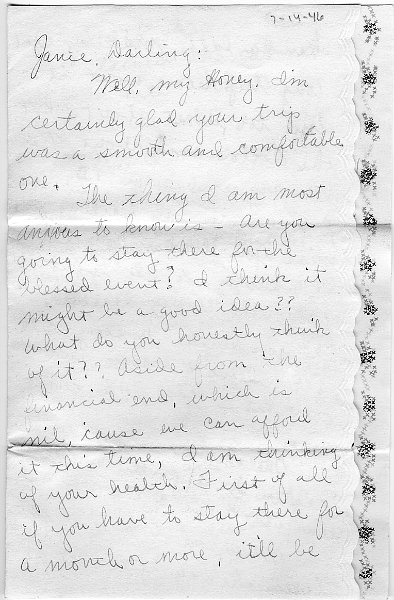 7-14-46
Janie, Darling:
Well, my Honey, I'm
certainly glad your trip
was a smooth and comfortable
one.
The thing I am most
anxious to know is - Are you
going to stay there for the
blessed event? I think it
might be a good idea??
What do you honestly think
of it?? Aside from the
financial end, which is
nil, 'cause we can afford
it this time, I am thinking
of your health. First of all
if you have to stay there for
a month or more, it'll be